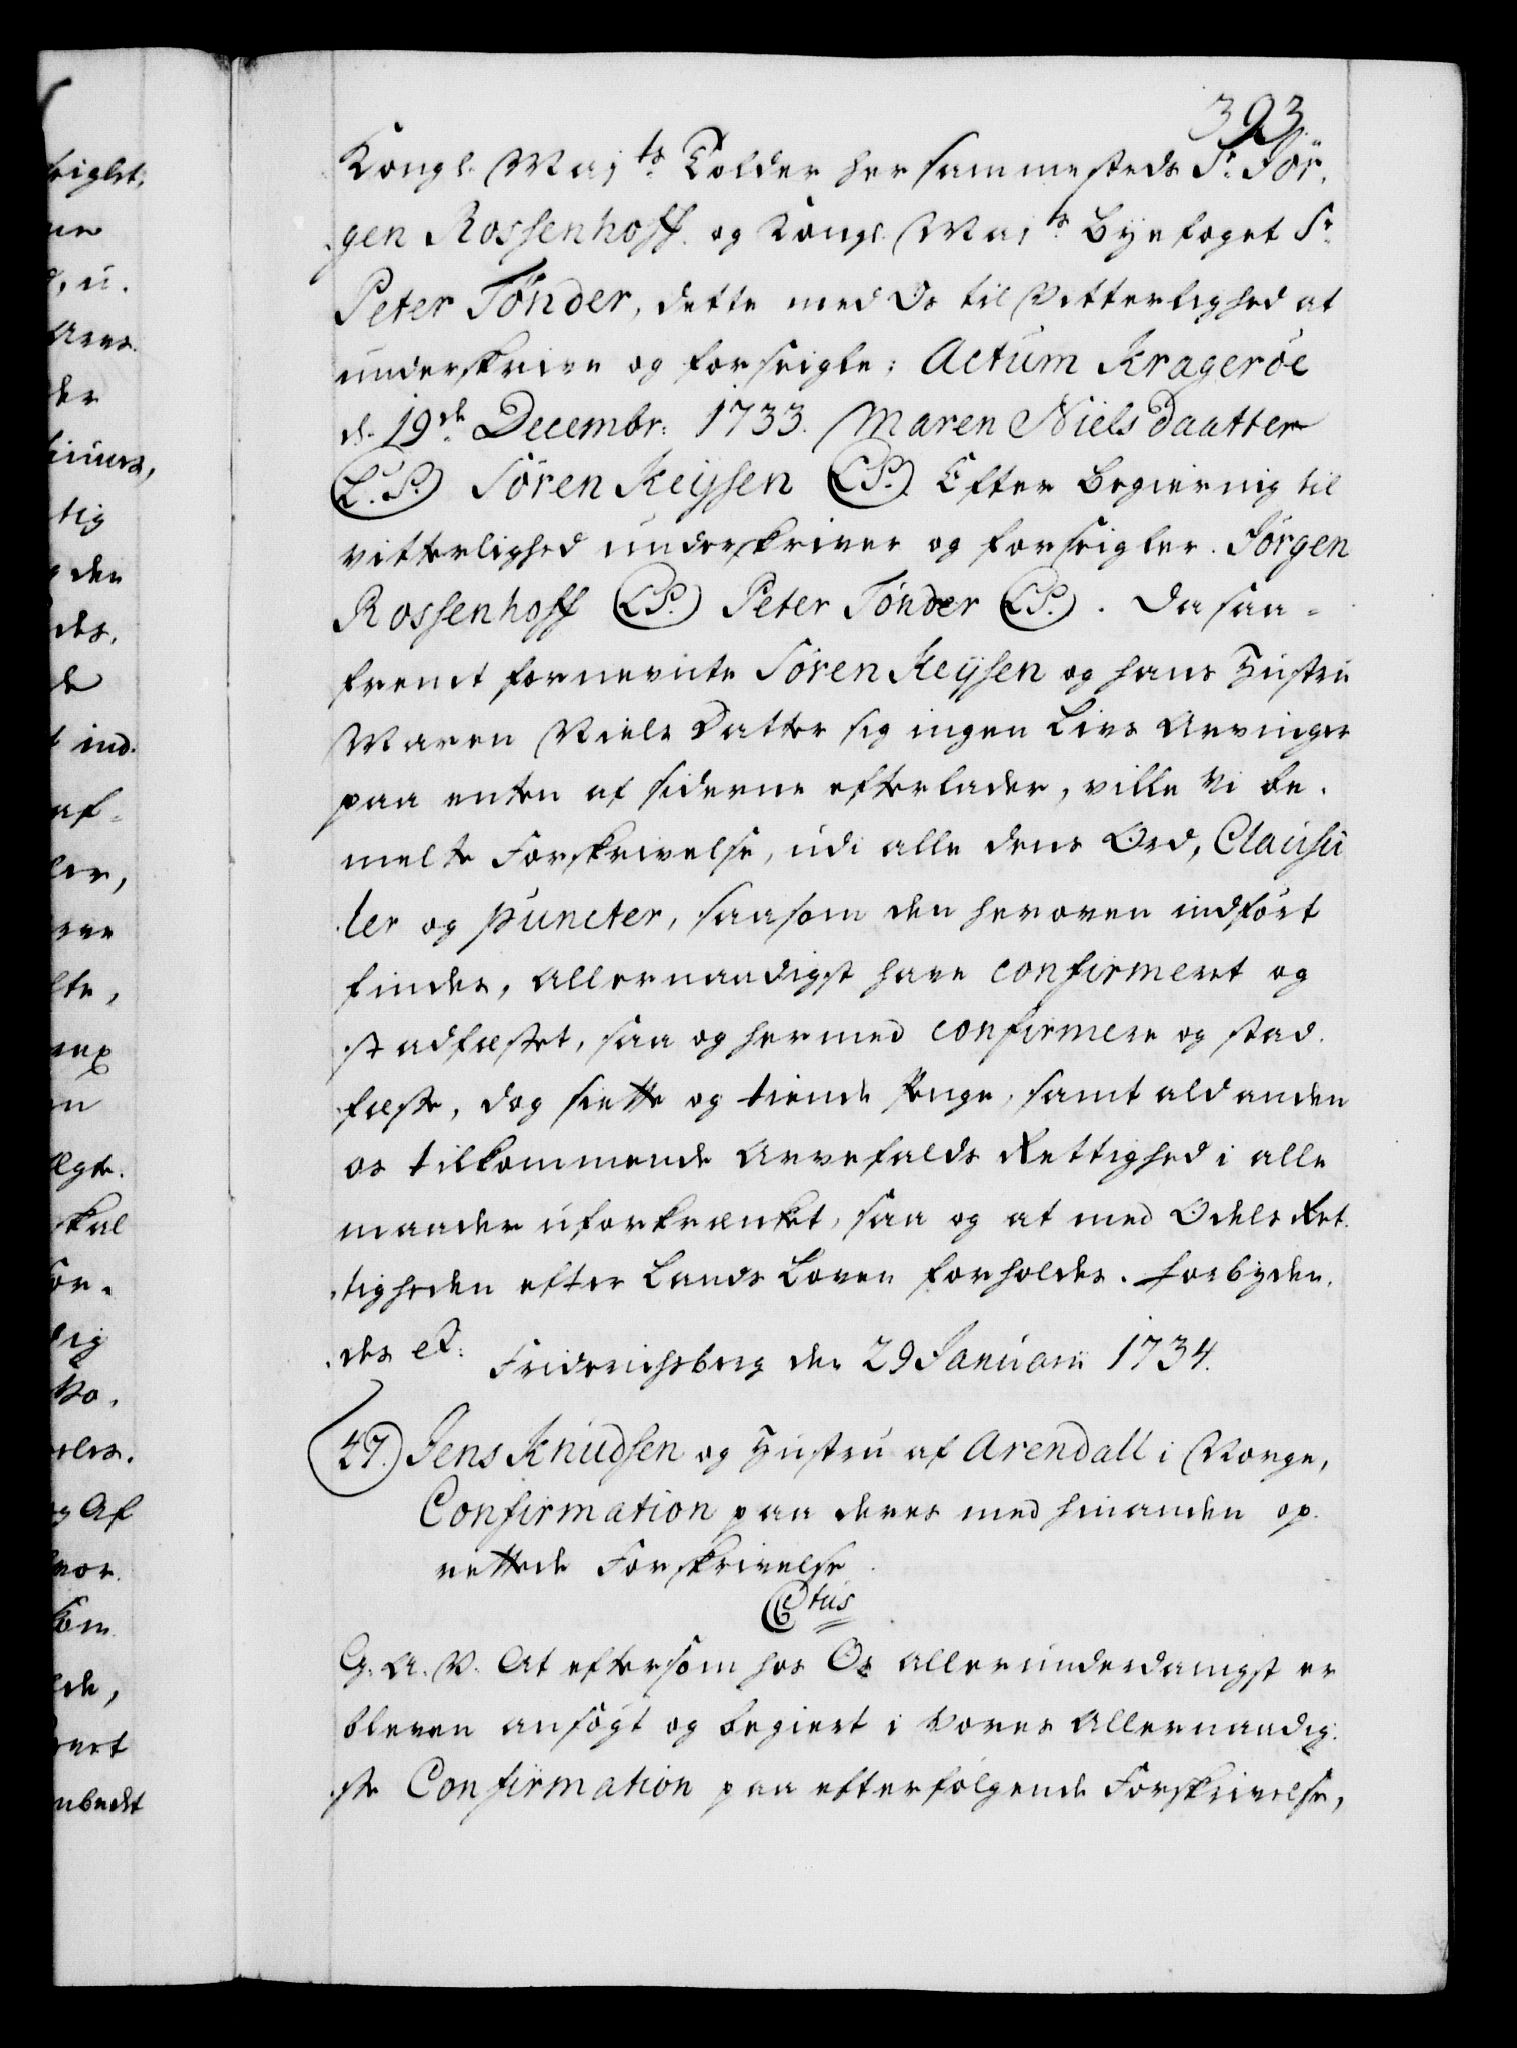 393.
Kongl. Maj ts Tolder her sammesteds Sr. Jör,
gen Rossenhoff og Kongl. Maj ts Byefoget Sr.
Peter Tönder, dette med Os til Vitterlighed at
underskrive og forseigle; Actum Krageröe
d. 19de Decembr: 1733. Maren Niels Daatter
(L.S.) Sören Keysen (LS.) Efter Begiering til
vitterlighed underskriver og forseigler. Jörgen
Rossenhoff (LS.) Peter Tönder (LS.). Da saa-
fremt fornevnte Sören Keysen og hans Hustru
Maren Niels Datter sig ingen Livs Arvinger
paa enten af siderne efterlader, ville Vi be.
melte Forskrivelse, udi alle dens Ord, Clausu
ler og puncter, saasom den heroven indfört
findes, Allernaadigst have confirmeret og
stadfæstet, saa og hermed confirmere og stad.
fæste, dog siette og tiende Penge, samt ald anden
os tilkommende Arvefalds Rettighed i alle
maader uforkrænket, saa og at med Odels Ret.
tigheden efter Lands Loven forholdes. Forbyden,
des et. Friderichsberg den 29 Januarii 1734.
47. Jens Knudsen og Hustru af Arendall i Norge,
Confirmation paa deres med hinanden op.
rettede Forskrivelse.
Ctus
G. A. V. At eftersom hos Os allerunderdanigst er
bleven ansögt og begiert i Vores Allernaadig.
ste Confirmation paa efterfölgende Forskrivelse,
seight,
d, u.
Arvs.
der
tig
den
des,
de
ind.
af-
ler,
lte,
skal
for-
lig
Af
vor.
som
ede,